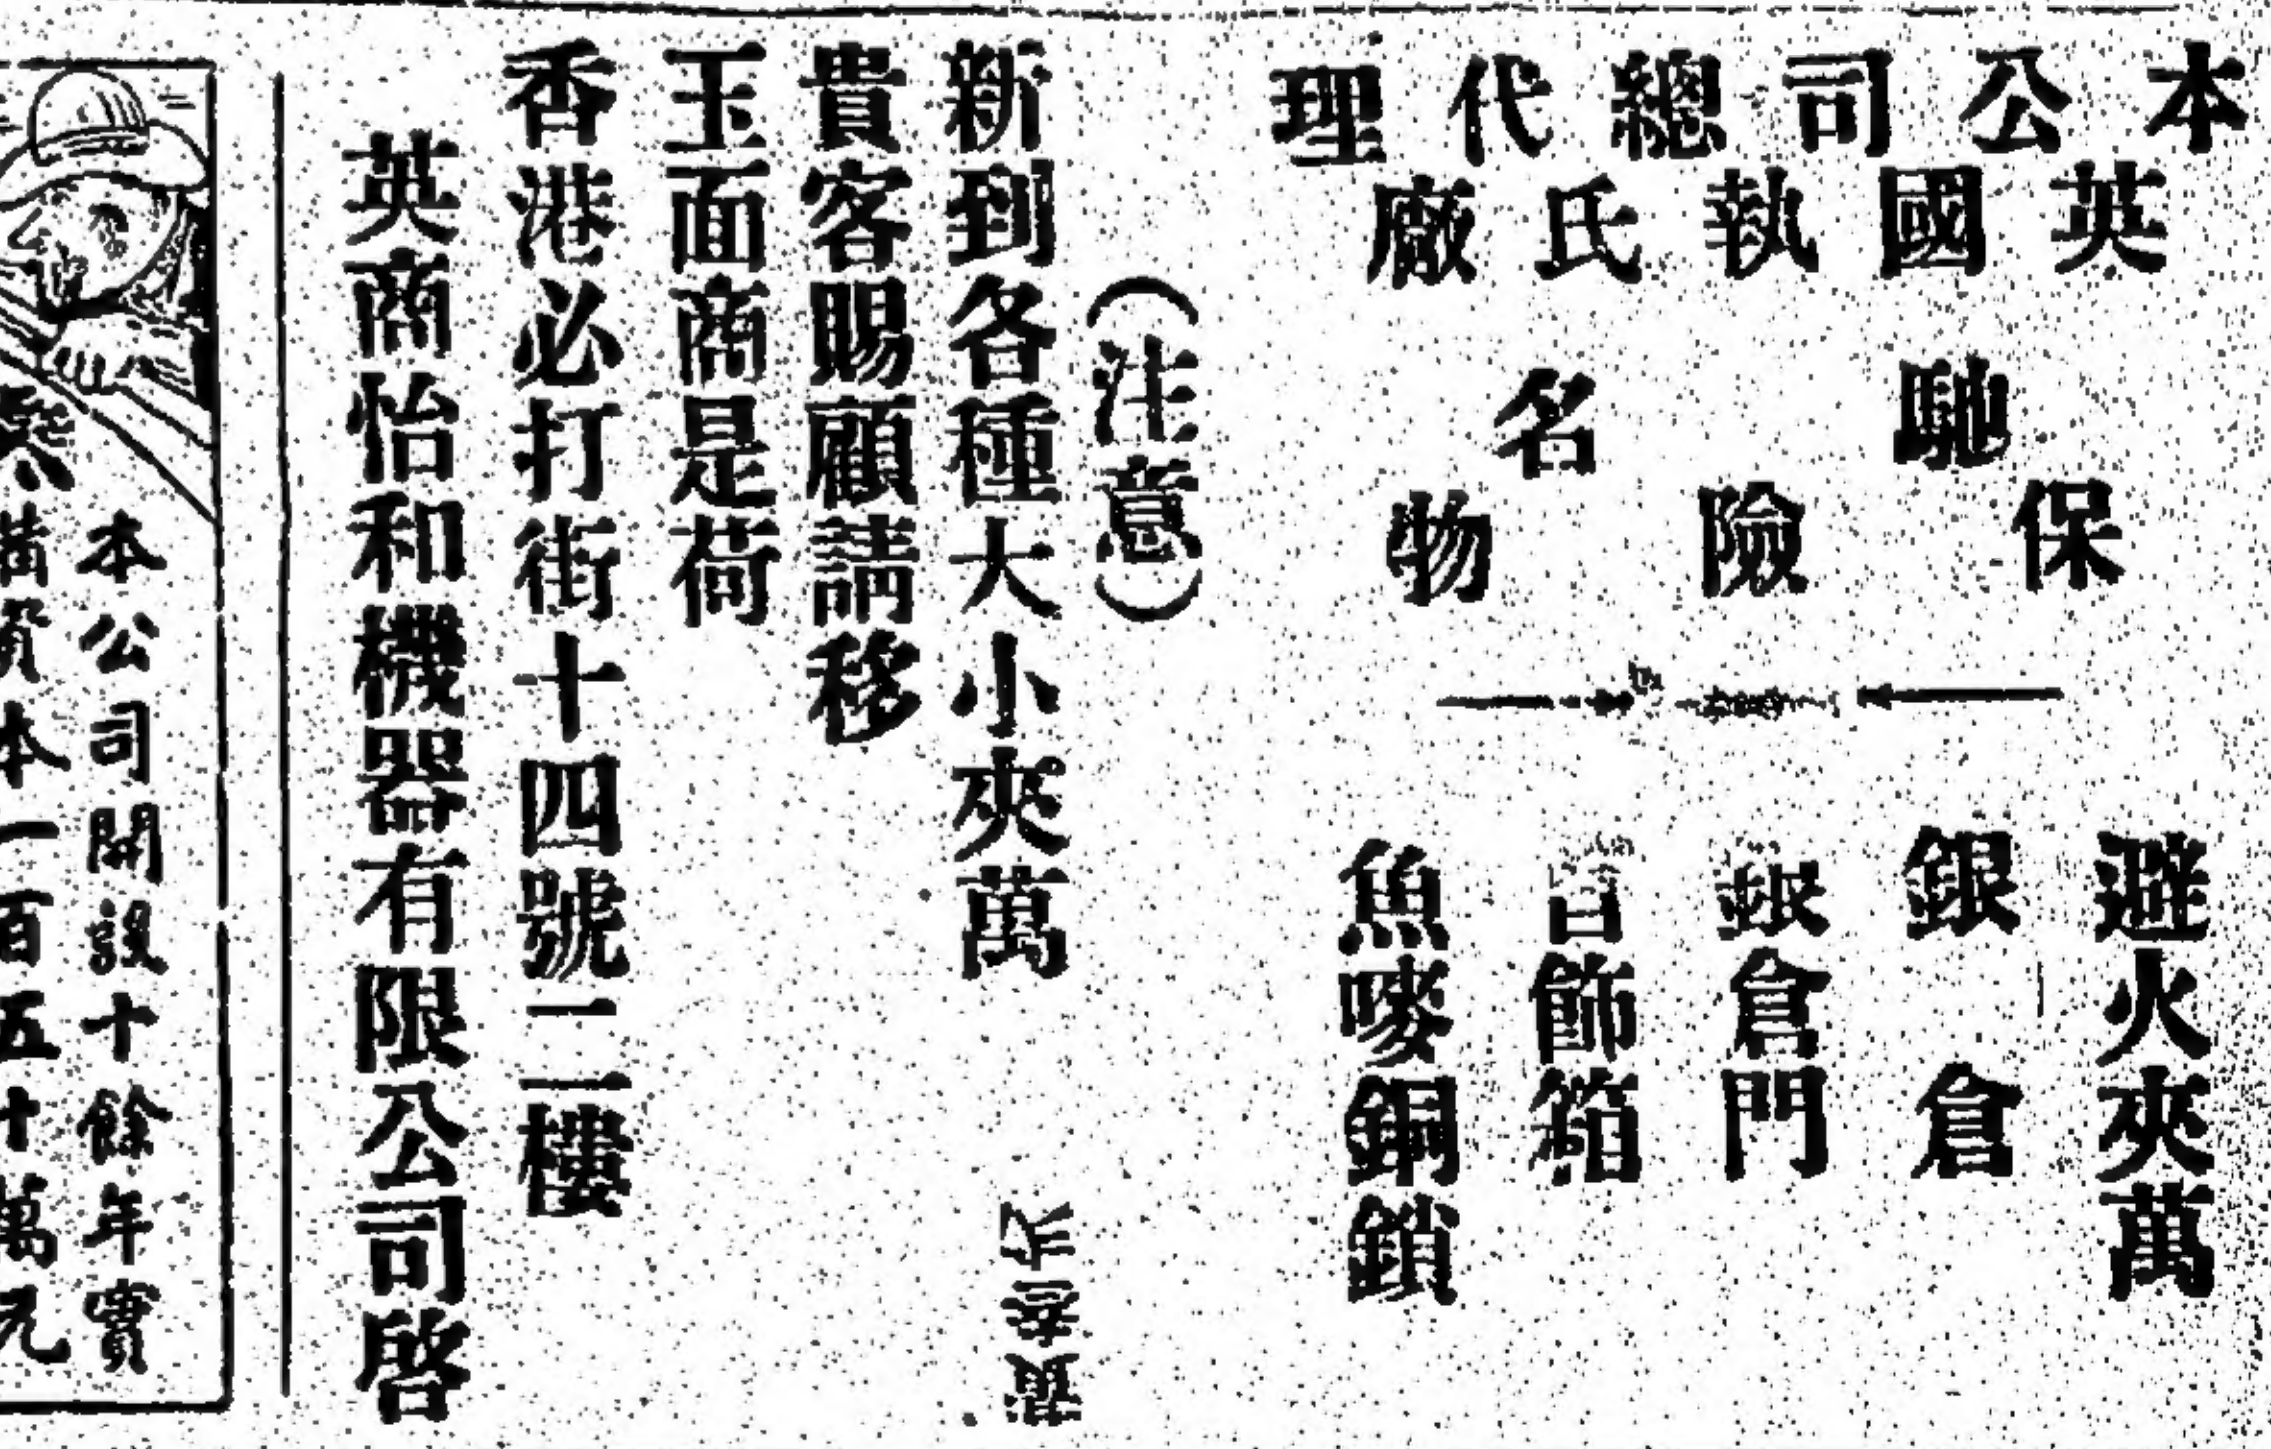 本公司總代理
英國執氏廠
馳名
保險物
避火夾萬
銀倉
銀倉門
飾箱
魚嘜銅鎖
（注意）
新到各種大小夾萬
貴客賜顧請移
玉面商是荷
香港必打街十四號二樓
英商怡和機器有限公司啓
本公司開設十餘年實
本一百五十萬元